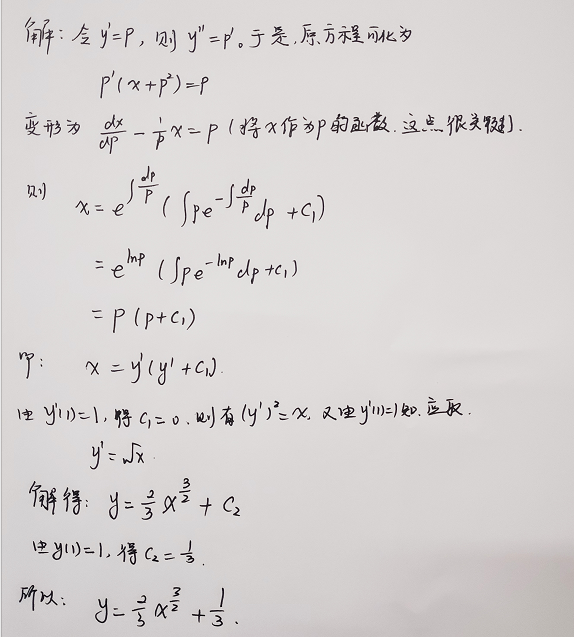 解：令 y'=P，则 y''=P'。于是，原方程可化为
P'(x+P²)=P
变形为 dx/dP - 1/P x = P (将x作为P的函数，这点很关键).
则 x = e^{∫dP/P} (∫Pe^{-∫dP/P}dP + C₁)
= e^{lnP} (∫Pe^{-lnP}dP+C₁)
= P(P+C₁)
即： x = y'(y'+C₁).
由 y'(1)=1，得 C₁=0，则有 (y')²=x，又由 y'(1)=1知，应取.
y'=√x.
解得： y = 2/3 x^{3/2} + C₂
由 y(1)=1，得 C₂=1/3.
所以： y = 2/3 x^{3/2} + 1/3.